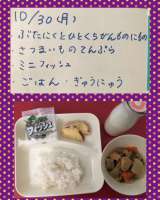 10/30(月)
ぶたにくとひとくちがんものにもの
さつまいものてんぷら
ミニフィッシュ
ごはん・ぎゅうにゅう
フィッシュ